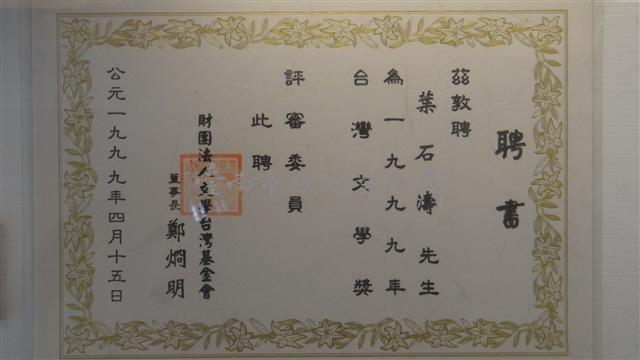 聘書
茲敦聘
葉石濤先生
為一九九九年
台灣文學獎
評審委員
此聘
財團法人文學台灣基金會
董事長 鄭烱明
公元一九九九年四月十五日